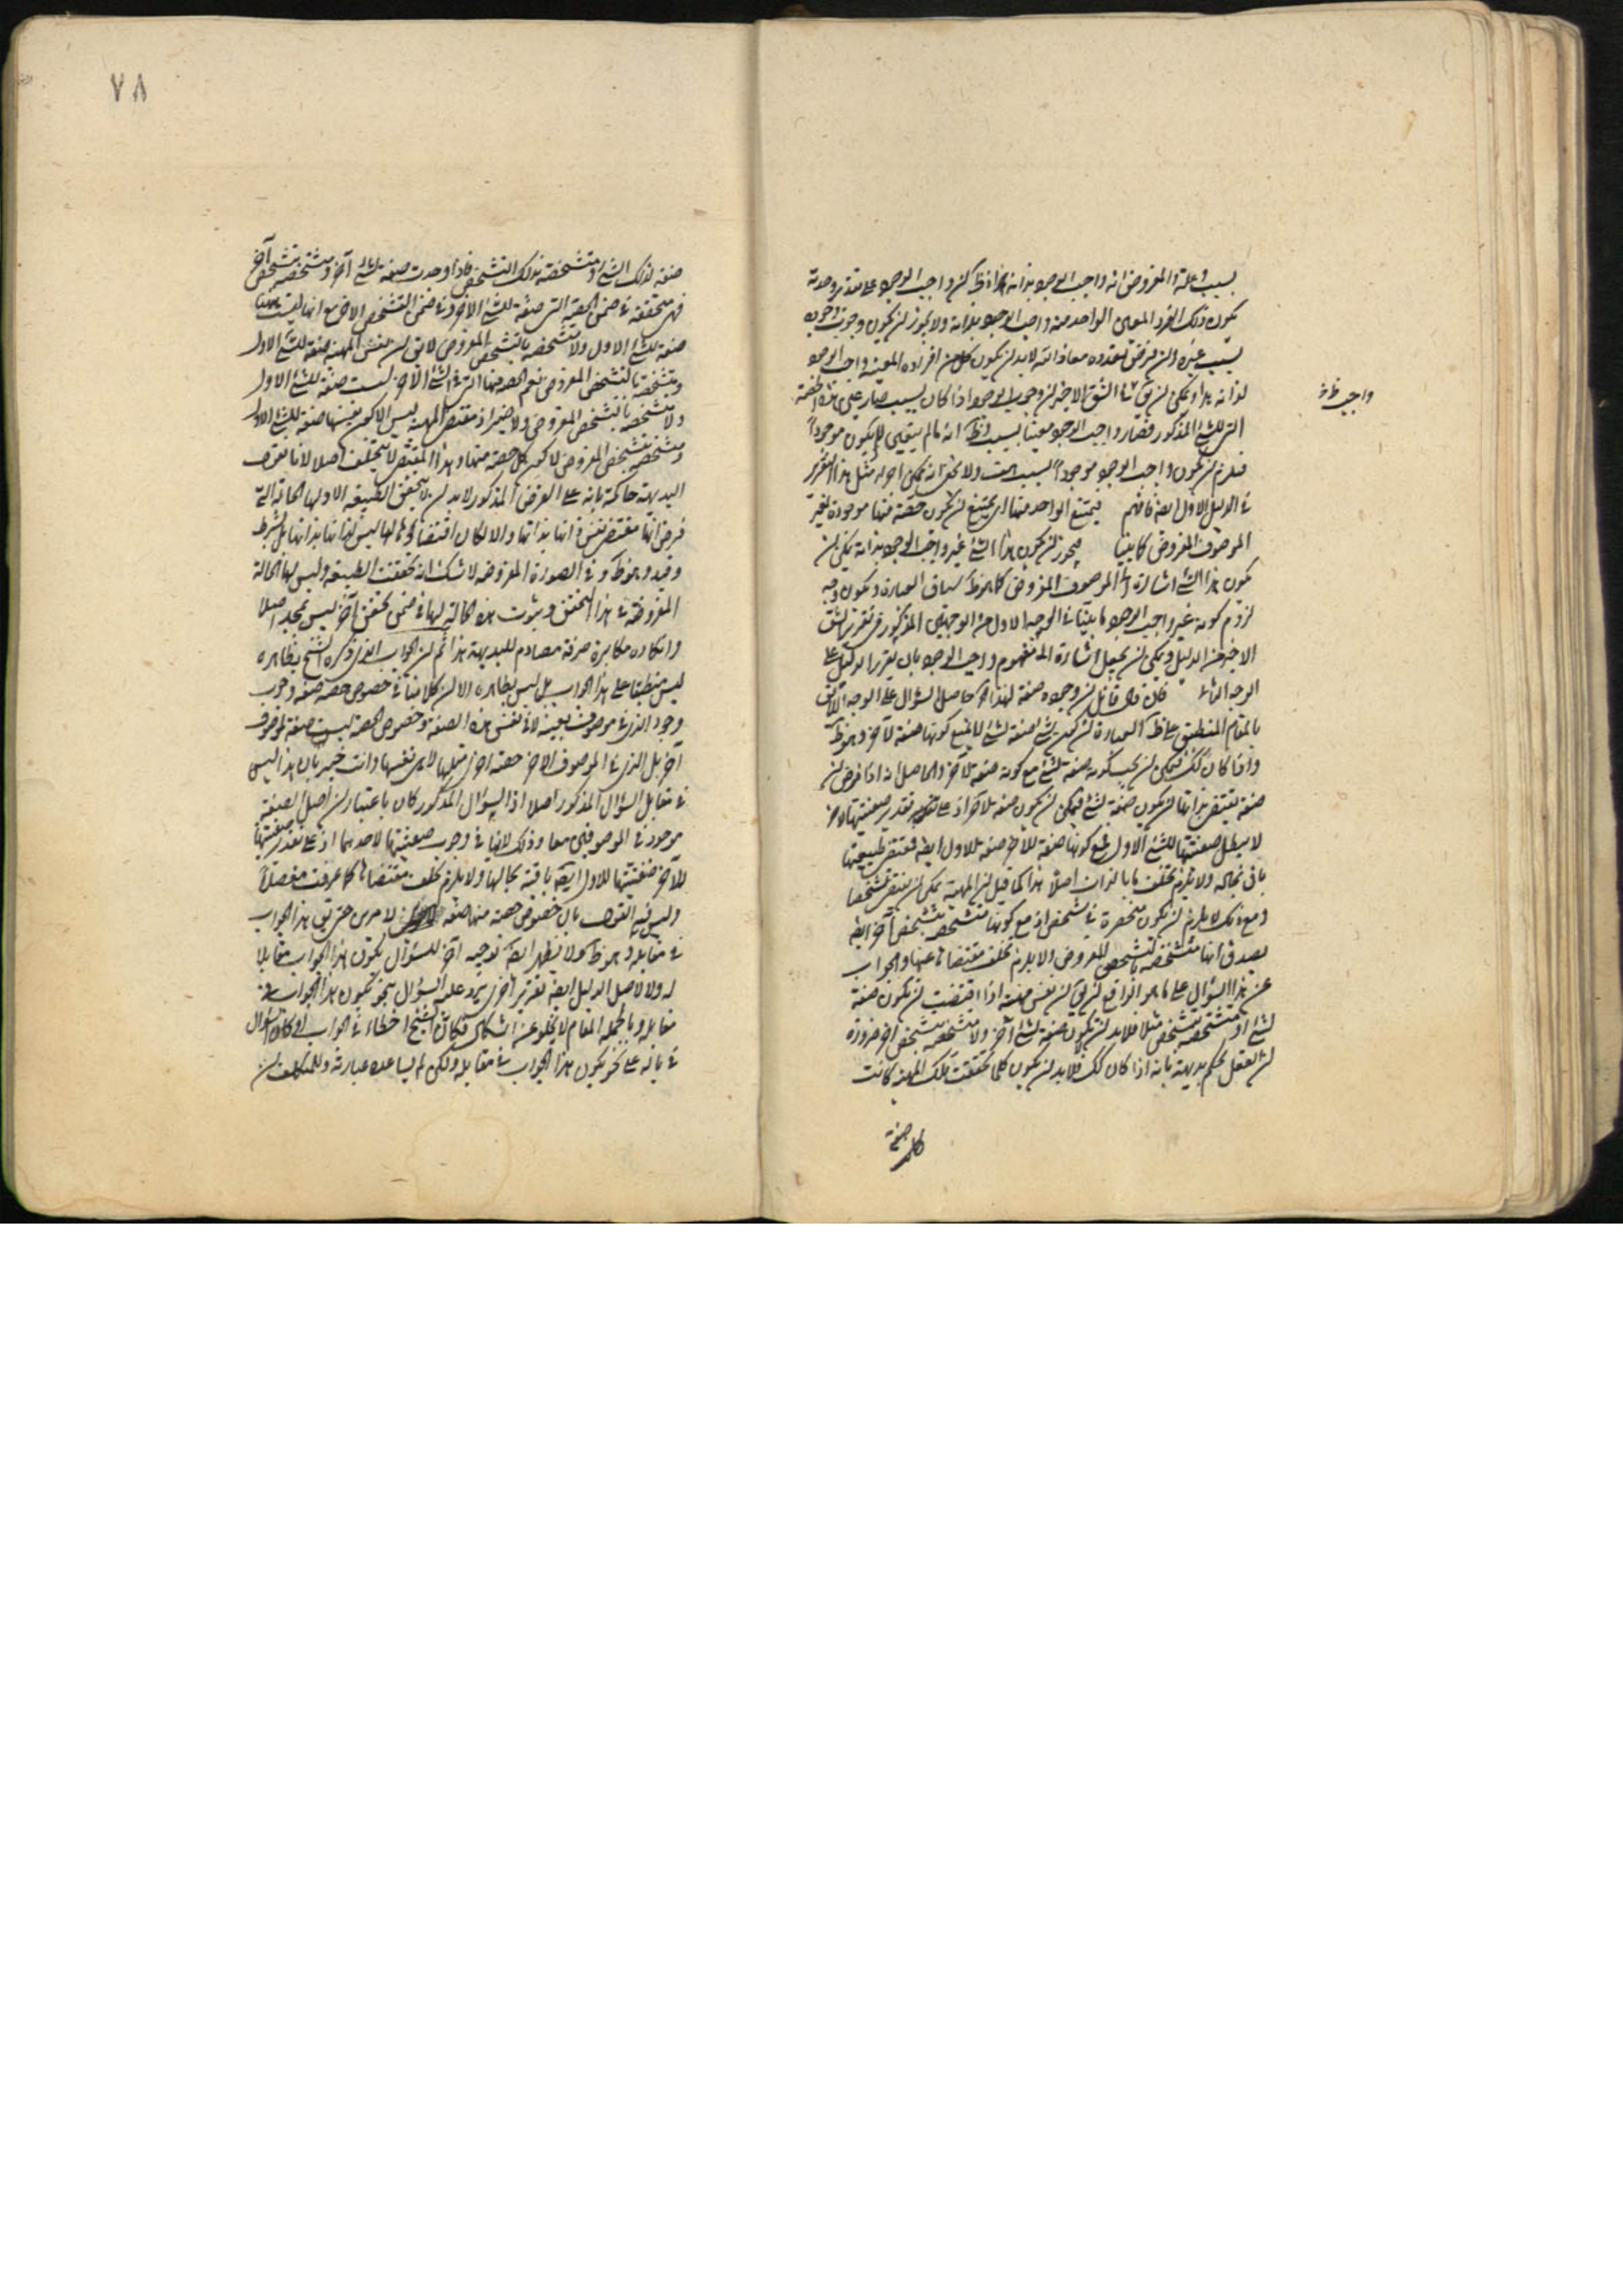 بسبب وعلة والمفروض انه واجب الوجود بذاته هذا اذ لو كان واجب الوجود على تقدير وحدته
يكون ذلك الفرد المعين الواحد منه واجب الوجود بذاته ولا يجوز ان يكون وجوب وجوده
بسبب غيره وان فرض تعدده معاذ الله لابد ان يكون كل من افراده المعينة واجب الوجود
لذاته هذا ويمكن ان يق في الشق الاخير ان وجوب الوجود اذا كان بسبب صار عين هذه الصفة
التي للشئ المذكور فصار واجب الوجود معينا بسبب وظ انه ما لم يتعين لم يكن موجوداً
فيلزم ان يكون واجب الوجود موجوداً بسبب هف ولا يخفى انه يمكن اجراء مثل هذا التقرير
في الدليل الاول ايضا فافهم فيمتنع الواحد منها اى يمتنع ان يكون حصة منها موجودة لغير
الموصوف المفروض كما بينا فيجوز ان يكون هذا الشئ غير واجب الوجود بذاته يمكن ان
يكون هذا الشئ اشارة الى الموصوف المفروض كما هو ظ سياق العبارة ويكون وجه
لزوم كونه غير واجب الوجود ما بينا في الوجه الاول من الوجهين المذكورين في تقرير الشق
الاخير من الدليل ويمكن ان يجعل اشارة الى مفهوم واجب الوجود بان يقرر الدليل على
الوجه الثاني فان قال قائل ان وجوده صفة لهذا اه حاصل السؤال على الوجه اللايق
بالمقام المنطبق على ظ العبارة ان كون شئ صفة لشئ لا يمنع كونها صفة لآخر وهو ظ
واذا كان كذلك فيمكن ان يجب كونه صفة لشئ مع كونه صفة لآخر والحاصل انه اذا فرض ان
صفة يقتضى بذاتها ان يكون صفة لشئ فيمكن ان يكون صفة لآخر اذ على تقدير صفتيتها لآخر
لا يبطل صفتيتها للشئ الاول فمع كونها صفة للآخر صفة للاول ايضا فمقتضى طبيعتها
باق بحاله ولا يلزم تخلف ما بالذات اصلا هذا كما قيل ان المهية يمكن ان يقتضى تشخصا
ومع ذلك لا يلزم ان يكون منحصرة في شخص اذ مع كونها متشخصة بتشخص آخر ايضا
يصدق انها متشخصة بالتشخص المفروض ولا يلزم تخلف مقتضاها عنها والجواب
عن هذا السؤال على ما هو الواقع ان يق ان نفس مهية اذا اقتضت ان يكون صفة
لشئ او متشخصة بتشخص مثلا فلابد ان لا يكون صفة لشئ آخر ولا متشخصة بتشخص آخر ضرورة
ان العقل يحكم بديهة بانه اذا كان كذلك فلابد ان يكون كلما تحققت تلك المهية كانت
صفة
واجب ظ
٧٨
صفة لذلك الشئ او متشخصة بذلك التشخص فاذا وجدت صفة لشئ آخر ومتشخصة بتشخص آخر
فهى متحققة في ضمن الحصة التي صفة للشئ الآخر وفي ضمن التشخص الاخر مع انها ليست ههنا
صفة للشئ الاول ولا متشخصة بالتشخص المفروض لا يق ان نفس المهية صفة للشئ الاول
ومتشخصة بالتشخص المفروض نعم الحصة منها التي في الشئ الآخر ليست صفة للشئ الاول
ولا متشخصة بالتشخص المفروض ولا ضير اذ مقتضى المهية ليس الا كون نفسها صفة للشئ الاول
ومتشخصة بتشخص المفروض لا كون كل حصة منها وهذا المقتضى لا يتخلف اصلا لانا نقول
البديهة حاكمة بانه على الفرض المذكور لابد ان لا يتحقق الطبيعة الا ولها الحالة التي
فرض انها مقتضى نفس ذاتها بذاتها والا لكان اقتضاؤها لها ليس لذاتها بذاتها بل بشرط
وقيد وهو ظ وفي الصورة المفروضة لا شك انه تحققت الطبيعة وليس لها الحالة
المفروضة في هذا التحقق وثبوت هذه الحالة لها في ضمن تحقق آخر ليس بمجد اصلا
وانكاره مكابرة صرفة مصادم للبديهة هذا ثم ان الجواب الذي ذكره الشيخ بظاهره
ليس منطبقا على هذا الجواب بل ليس بظاهره الا ان كلامنا في خصوص حصة صفة وجوب
وجود الذي في موصوف بعينه لا في نفس هذه الصفة وخصوص الحصة ليست صفة لموصوف
آخر بل الذي في الموصوف الاخر حصة اخرى مثلها لا هى نفسها وانت خبير بان هذا ليس
في مقابل السؤال المذكور اصلا اذ السؤال المذكور كان باعتبار ان اصل الصفة
موجودة في الموصوفين معا وذلك لا ينافي وجوب صفتيتها لاحدهما اذ على تقدير صفتيتها
للآخر صفتيتها للاول ايضا باقية بحالها ولا يلزم تخلف مقتضاها كما عرفت مفصلا
وليس فيه القول بان خصوص حصة منها صفة لامرين حتى يق هذا الجواب
في مقابله وهو ظ ولا يظهر ايضا توجيه آخر للسؤال يكون هذا الجواب مقابلا
له ولا لاصل الدليل ايضا تقرير آخر يرد عليه السؤال بنحو يكون هذا الجواب في
مقابله وبالجملة المقام لا يخلو عن اشكال فكان الشيخ اخطاء في الجواب او كان السؤال
في باله على نحو يكون هذا الجواب في مقابله ولكن لم يساعده عبارته وللتكلف ان